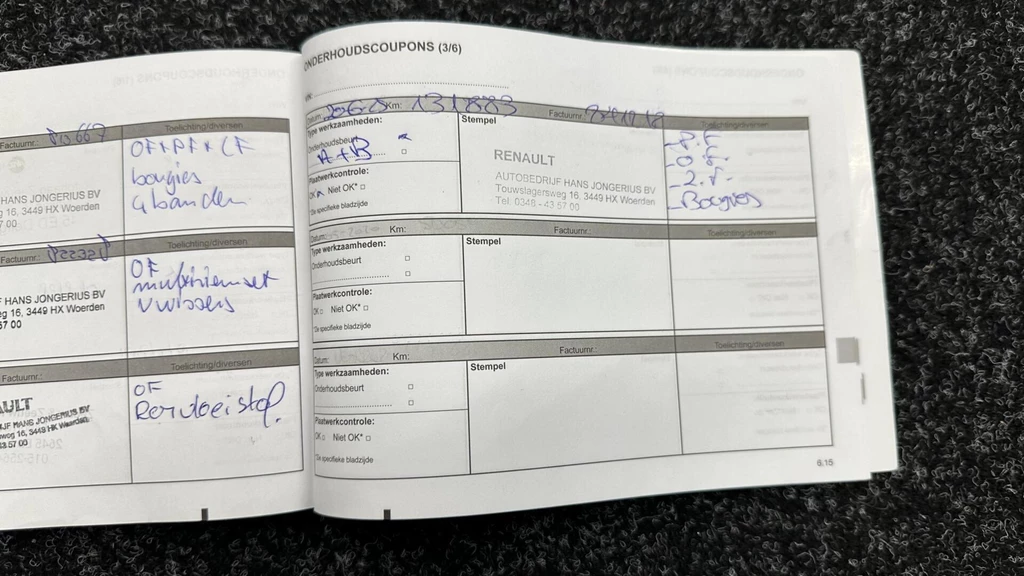 Factuurnr.:
Toelichting/diversen
OF+PF+CF
bougies
4 banden
HANS JONGERIUS BV
g 16, 3449 HX Woerden
7 00
Factuurnr.:
Toelichting/diversen
OF
multiriemset
V wissers
F HANS JONGERIUS BV
eg 16, 3449 HX Woerden
57 00
Factuurnr.:
Toelichting/diversen
OF
Remvloeistof.
AULT
RIJF HANS JONGERIUS BV
weg 16, 3449 HK Woerden
43 57 00
ONDERHOUDSCOUPONS (3/6)
VIN:
Datum: Km: 131883 Factuurnr.: Toelichting/diversen
Type werkzaamheden:
Onderhoudsbeurt
A+B
Plaatwerkcontrole:
OK Niet OK*
*Zie specifieke bladzijde
Stempel
RENAULT
AUTOBEDRIJF HANS JONGERIUS BV
Touwslagersweg 16, 3449 HX Woerden
Tel: 0348 - 43 57 00
- P.F.
- O.F.
- Bougies
Datum: Km: Factuurnr.: Toelichting/diversen
Type werkzaamheden:
Onderhoudsbeurt
Plaatwerkcontrole:
OK Niet OK*
*Zie specifieke bladzijde
Stempel
Datum: Km: Factuurnr.: Toelichting/diversen
Type werkzaamheden:
Onderhoudsbeurt
Plaatwerkcontrole:
OK Niet OK*
*Zie specifieke bladzijde
Stempel
6.15